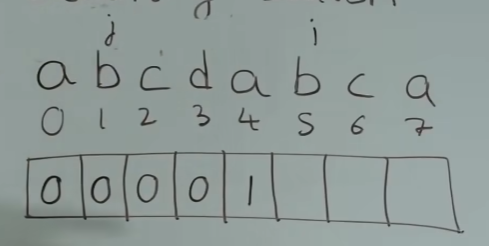 j i
a b c d a b c a
0 1 2 3 4 5 6 7
0 0 0 0 1